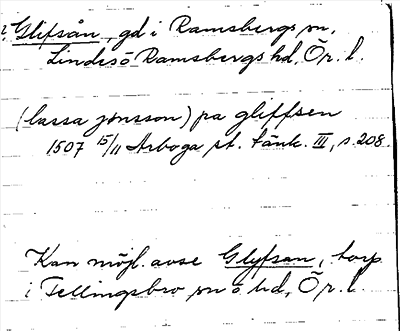 ? Glifsån, gd i Ramsbergs sn,
Lindes ö Ramsbergs hd, Ör. l.
(lassa jonsson) pa gliffsen
1507 15/11 Arboga st. tänk. III, s. 208.
Kan möjl. avse Glyfsan, torp
i Fellingsbro sn o hd, Ör. l.